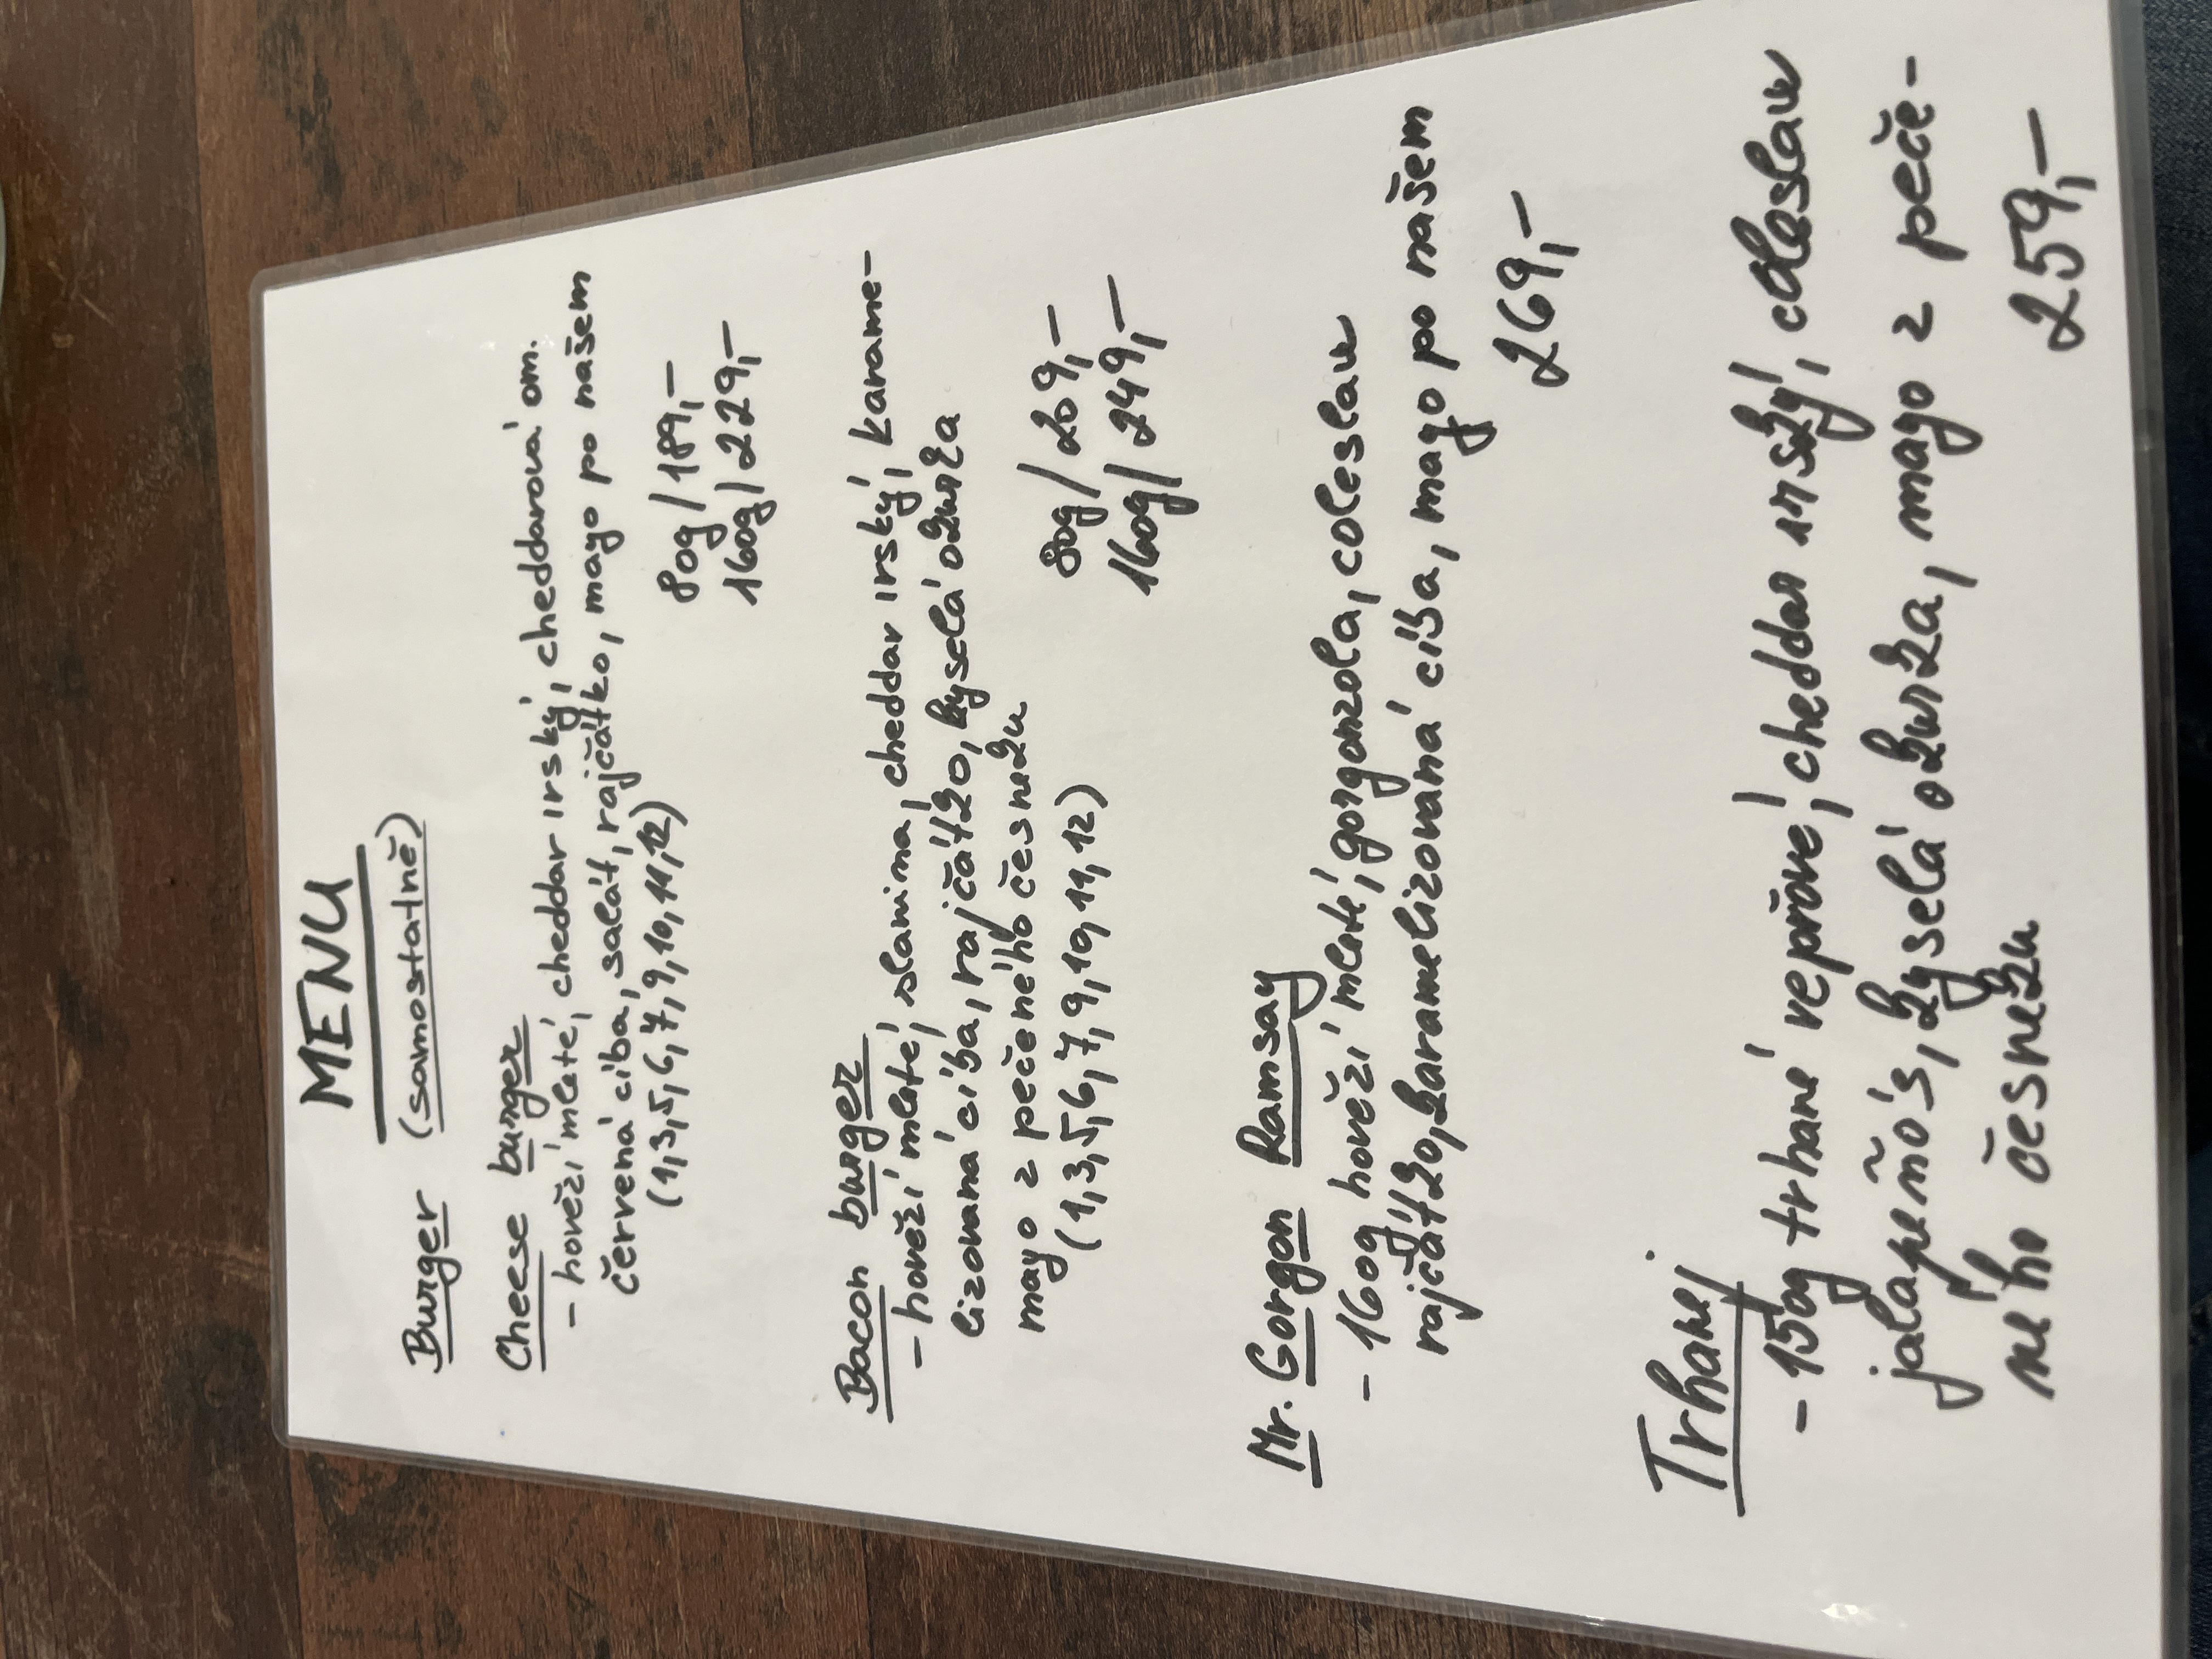 MENU
Burger (samostatně)
Cheese burger
- hovězí mleté, cheddar irský, cheddarová om.
červená ciba, salát, rajčátko, mayo po našem
(1,3,5,6,7,9,10,11,12)
80g/189,-
160g/229,-
Bacon burger
- hovězí mleté, slanina, cheddar irský, karame-
lizovaná ciba, rajčátko, kyselá okurka
mayo z pečeného česneku
(1,3,5,6,7,9,10,11,12)
80g/209,-
160g/249,-
Mr. Gorgon Ramsay
- 160g hovězí mleté, gorgonzola, coleslaw
rajčátko, karamelizovaná ciba, mayo po našem
269,-
Trhanej
- 150g trhané vepřové, cheddar irský, coleslaw
jalapeños, kyselá okurka, mayo z peče-
ného česneku
259,-